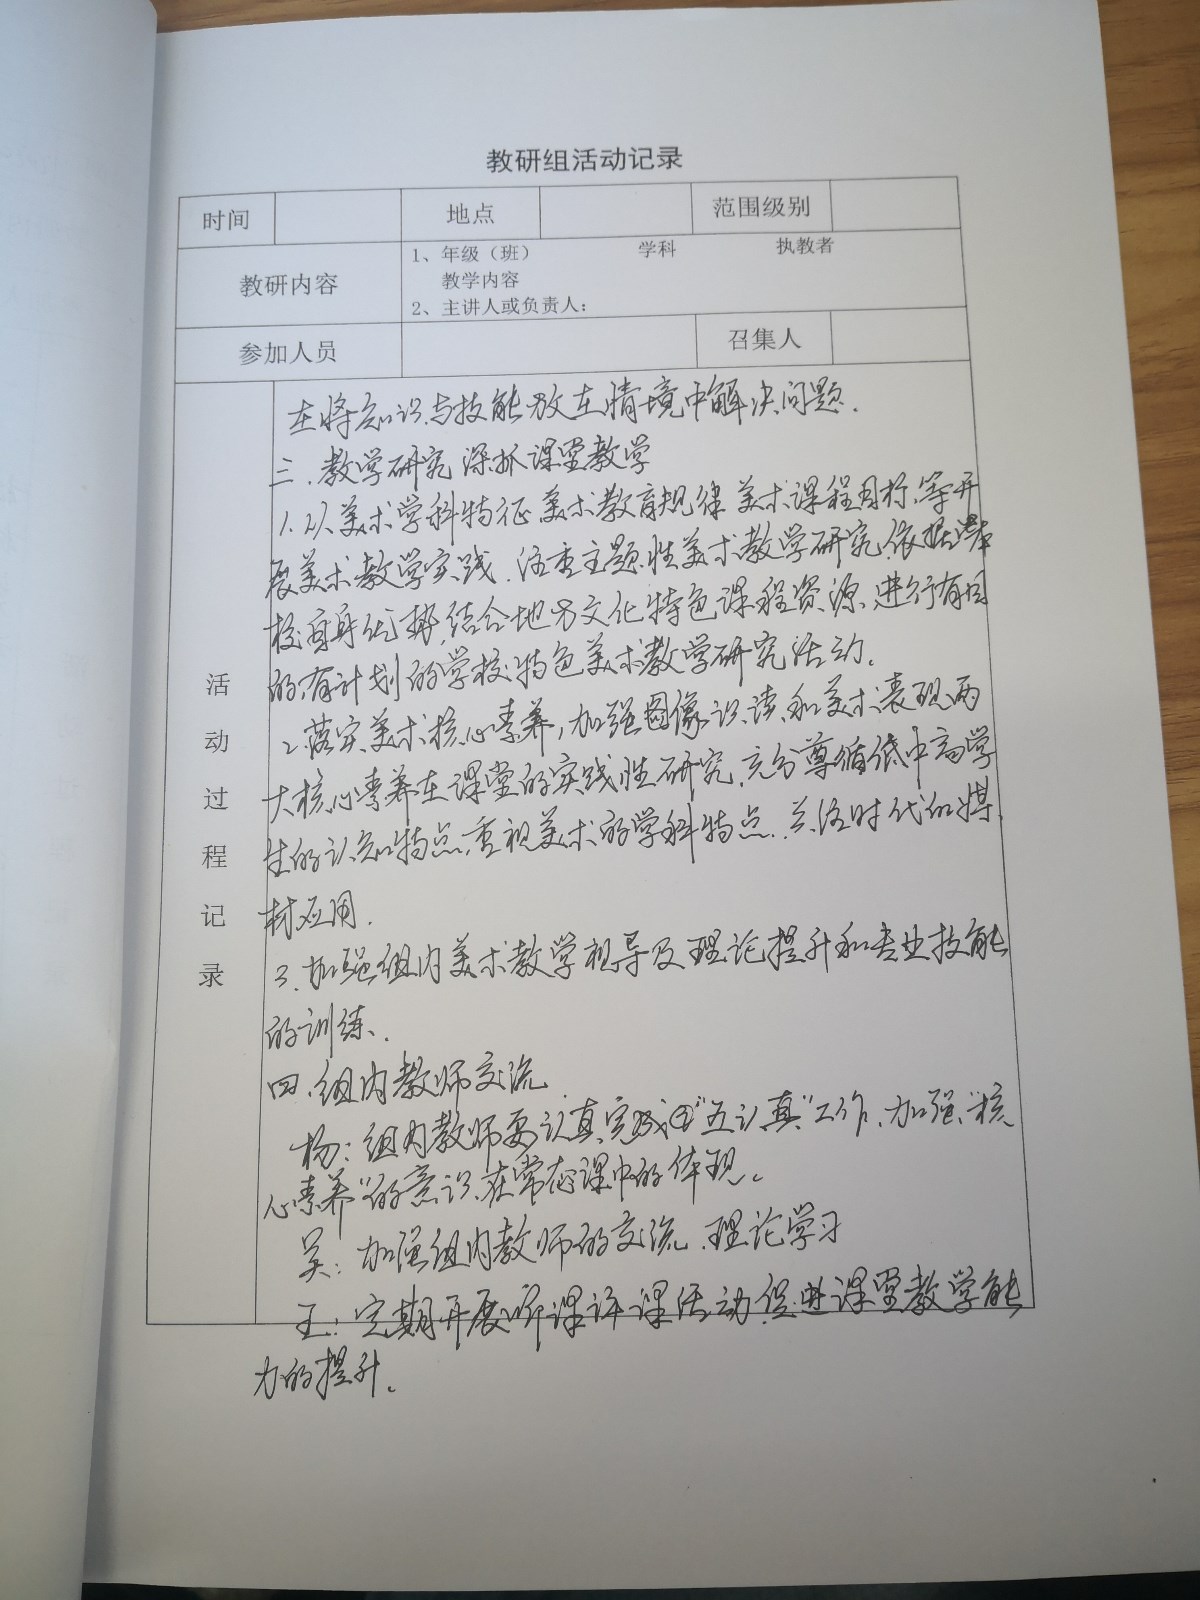 教研组活动记录
时间 地点 范围级别
教研内容
1、年级（班） 学科 执教者
教学内容
2、主讲人或负责人：
参加人员 召集人
活动过程记录
在将知识与技能放在情境中解决问题.
三.教学研究 深抓课堂教学
1.以美术学科特征 美术教育规律 美术课程目标,等开
展美术教学实践.注重主题性美术教学研究.依据学
校自身优势,结合地方文化特色课程资源.进行有目
的,有计划的学校特色美术教学研究活动.
2.落实美术核心素养,加强图像识读和美术表现两
大核心素养在课堂的实践性研究.充分尊循低中高学
生的认知特点,重视美术的学科特点.关注时代的媒
材应用.
3.加强组内美术教学视导及理论提升和专业技能
的训练.
四.组内教师交流
杨:组内教师要认真完成"五认真"工作.加强"核
心素养"的意识在常态课中的体现。
吴:加强组内教师的交流.理论学习
王:定期开展听课评课活动,促进课堂教学能
力的提升。